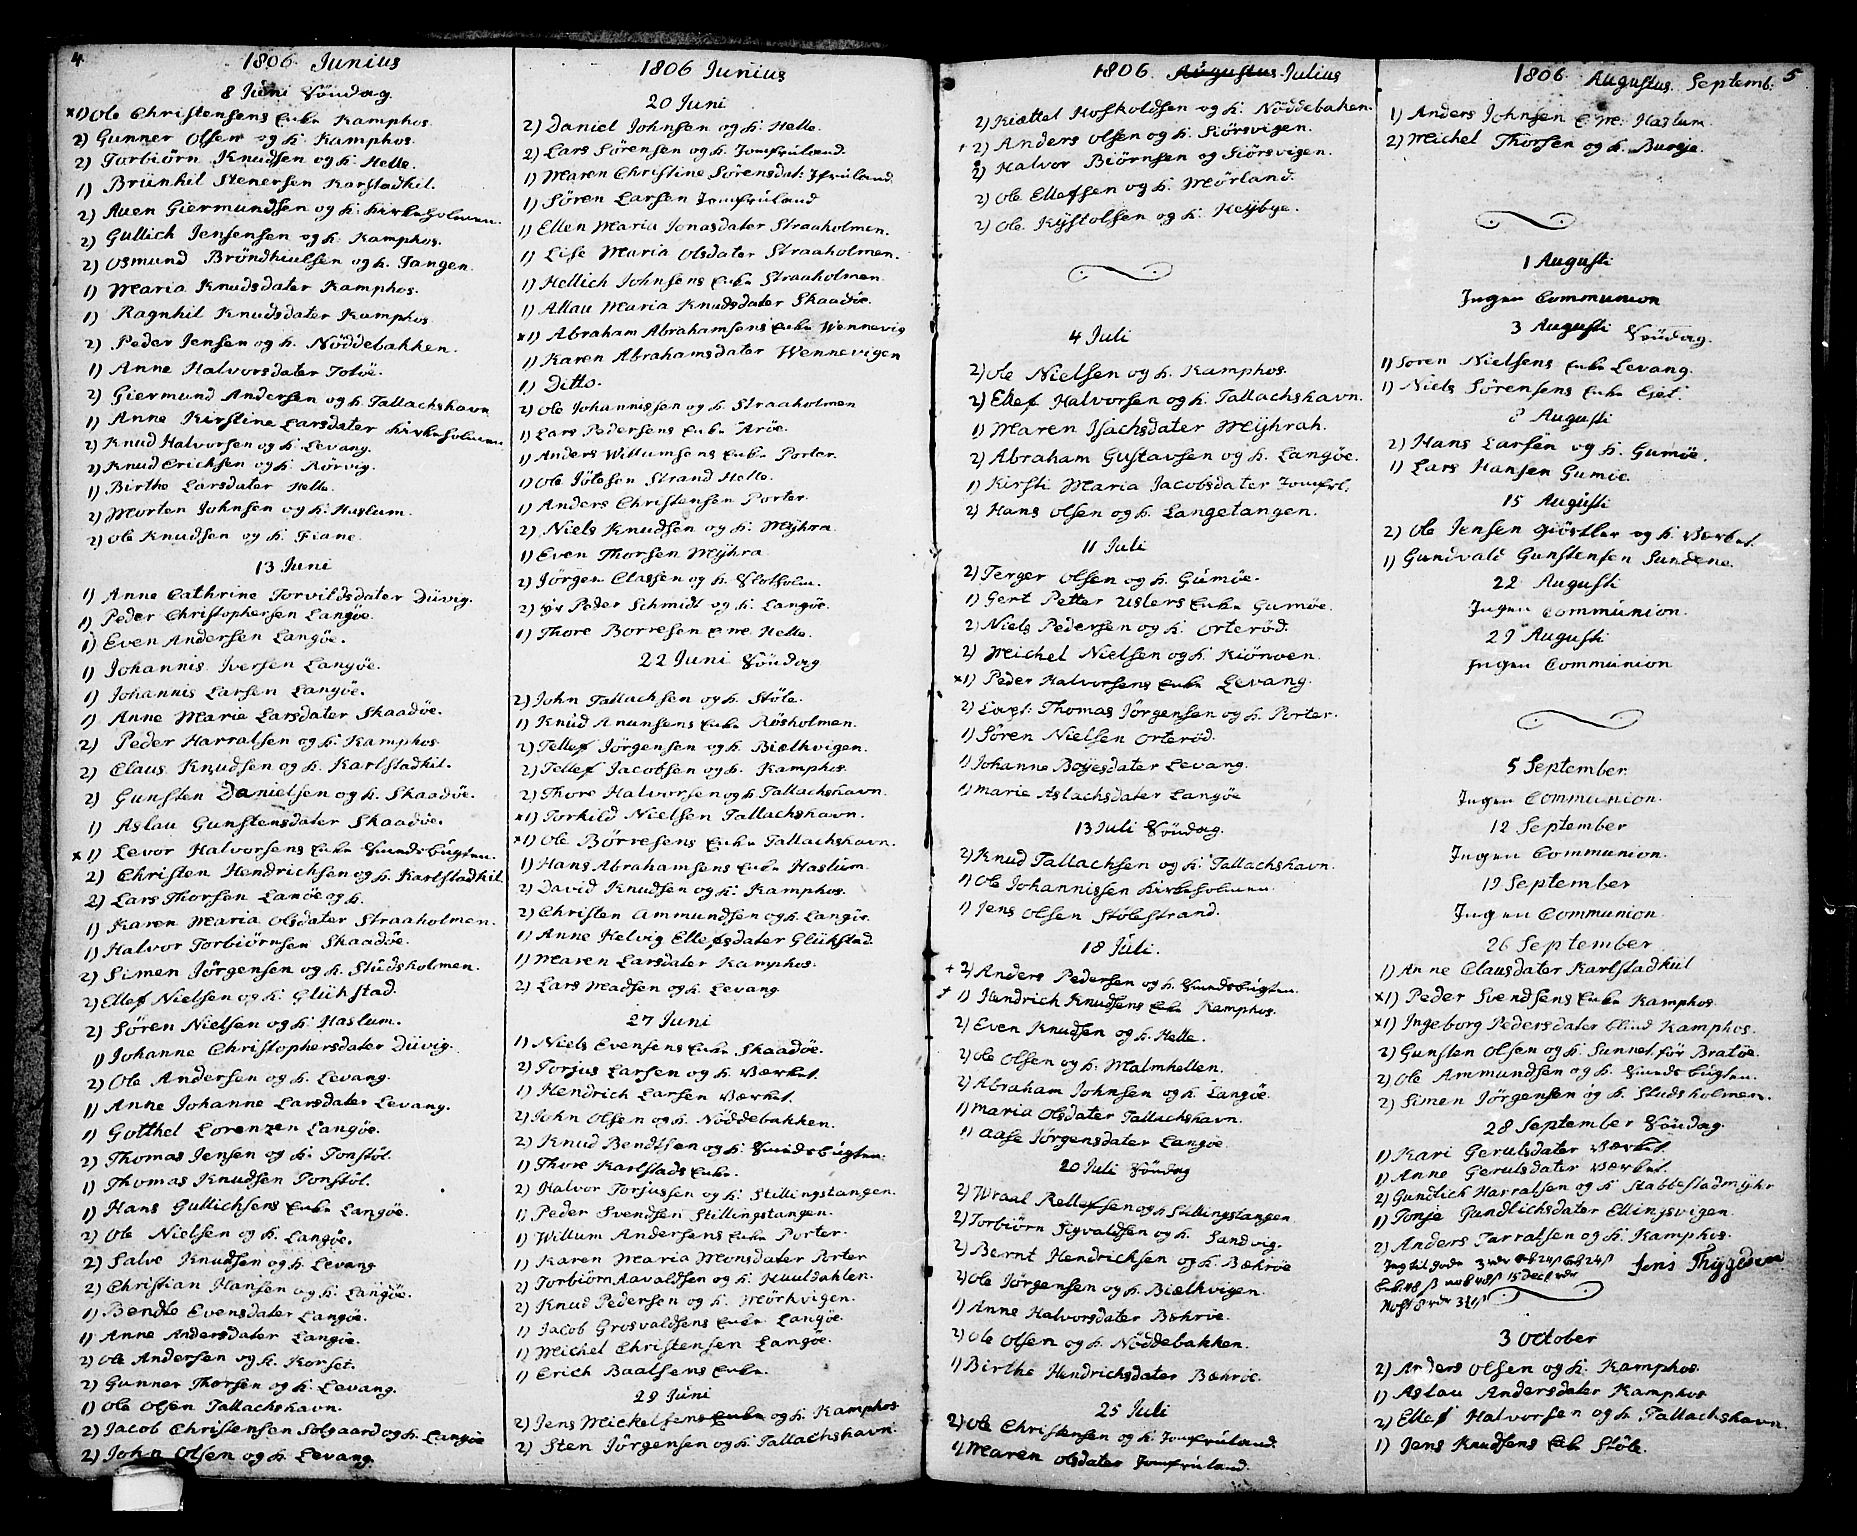 4
1806 Junius
8 Juni Söndag
×1) Ole Christensens Enke Kamphos.
2) Gunner Olsen og k. Kamphos.
2) Torbiörn Knudsen og k. Helle.
1) Brünhil Stenersen Karstadkil.
2) Aven Giermundsen og k. Kirkeholmen.
2) Gullich Jensensen og k. Kamphos.
2) Osmund Bröndhiulsen og k. Tangen.
1) Maria Knudsdater Kamphos.
1) Ragnhil Knudsdater Kamphos.
2) Peder Jensen og k. Nöddebakken.
1) Anne Halvorsdater Totöe.
2) Giermund Andersen og k. Tallachshavn
1) Anne Kirstine Larsdater Kirkeholmen.
2) Knud Halvorsen og k. Levang.
2) Knud Ericksen og k. Rörvig.
1) Birthe Larsdater Helle.
2) Morten Johnsen og k. Haslum.
2) Ole Knudsen og k. Fiane.
13 Juni
1) Anne Cathrine Torvildsdater Düvig.
1) Peder Christophersen Langöe.
1) Even Andersen Langöe.
1) Johannis Iversen Langöe.
1) Johannis Larsen Langöe.
1) Anne Marie Larsdater Skaadöe.
2) Peder Harralsen og k. Kamphos
2) Claus Knudsen og k. Karlstadkil.
2) Gunsten Danielsen og k. Skaadöe.
1) Aslau Gunstensdater Skaadöe.
×1) Levor Halvorsens Enke Sundsbugten.
2) Christen Hendrichsen og k. Karlstadkil
2) Lars Thorsen Lanöe og k.
1) Karen Maria Olsdater Straaholmen.
1) Halvor Torbiörnsen Skaadöe.
2) Simen Jörgensen og k. Studsholmen.
2) Ellef Nielsen og k. Glükstad.
2) Sören Nielsen og k. Haslum.
1) Johanne Christophersdater Düvig.
2) Ole Andersen og k. Levang.
1) Anne Johanne Larsdater Levang.
1) Gotthel Lorenzen Langöe.
2) Thomas Jensen og k. Tonstöl.
1) Thomas Knudsen Tonstöl.
1) Hans Gullichsens Enke Langöe.
2) Ole Nielsen og k. Langöe.
2) Salve Knudsen og k. Levang
2) Christian Hansen og k. Langöe.
1) Bendte Evensdater Langöe.
1) Anne Andersdater Langöe.
2) Ole Andersen og k. Korset.
2) Gunner Thorsen og k. Levang.
1) Ole Olsen Tallachshavn.
2) Jacob Christensen Solgaard og k. Langöe
2) John Olsen og k. Levang.
1806 Junius
20 Juni
2) Daniel Johnsen og k. Helle.
2) Lars Sörensen og k. Jomfruland.
1) Maren Christine Sörensdat: Jfruland.
1) Sören Larsen Jomfruland
1) Ellen Maria Jonasdater Straaholmen.
1) Lise Maria Olsdater Straaholmen.
1) Hellich Johnsens Enke Straaholmen.
1) Allau Maria Knudsdater Skaadöe.
×1) Abraham Abrahamsens Enke Wennevig
1) Karen Abrahamsdater Wennevigen
1) Ditto.
2) Ole Johannissen og k. Straaholmen
1) Lars Pedersens Enke Aröe.
1) Anders Willumsens Enke Porter.
1) Ole Jötosen Strand Helle.
1) Anders Christensen Porter.
2) Niels Knudsen og k. Mÿhra.
1) Even Thorsen Mÿhra
2) Jörgen Clasen og k. Slotholm.
2) Peder Schmidt og k. Langöe.
1) Thore Borresen Helle.
22 Juni Söndag
2) John Tallachsen og k. Stöle.
1) Knud Anunsens Enke Rösholmen.
2) Tellef Jörgensen og k. Biælkvigen.
2) Tellef Jacobsen og k. Kamphos.
2) Thore Halvorsen og k. Tallachshavn.
×1) Torkild Nielsen Tallachshavn.
×1) Ole Börresens Enke Tallachshavn.
1) Hans Abrahamsens Enke Haslum.
2) David Knudsen og k. Kamphos.
2) Christen Ammundsen og k. Langöe.
1) Anne Helvig Ellefsdater Glükstad
1) Maren Larsdater Kamphos.
2) Lars Madsen og k. Levang
27 Juni
1) Niels Evensens Enke Skaadöe.
2) Torjus Larsen og k. Værket.
1) Hendrich Larsen Værket.
2) John Olsen og k. Nöddebakken.
2) Knud Bendtsen og k. Sundsbugten.
1) Thore Karlstads Enke.
2) Halvor Torjussen og k. Stillingstangen.
1) Peder Svendsen Stillingstangen.
1) Willum Andersens Enke Porter.
1) Karen Maria Monsdater Porter
2) Torbiörn Aavaldsen og k. Huuldahlen.
2) Knud Pedersen og k. Mörkvigen.
1) Jacob Grosvaldsens Enke Langöe.
1) Michel Christensen Langöe.
1) Erich Baalsens Enke.
29 Juni
2) Jens Mickelsens Enke og k. Kamphos
2) Sten Jörgensen og k. Tallachshavn.
1806. Augustus Julius
2) Kiættel Hofkoldsen og k. Nöddebaken.
2) Anders Olsen og k. Siörsvigen.
2) Halvor Biörnsen og Siörsvigen.
2) Ole Ellefsen og k. Mörland.
2) Ole Kÿstolsen og k. Heÿbye.
4 Juli
2) Ole Nielsen og k. Kamphos.
2) Ellef Halvorsen og k. Tallachshavn.
1) Maren Isachsdater Mÿhrah.
2) Abraham Gustavsen og k. Langöe.
1) Kirsti Maria Jacobsdater Jomfrl.
2) Hans Olsen og k. Langetangen.
11 Juli
2) Terger Olsen og k. Gumöe.
1) Gert Petter Uslers Enke Gumöe.
2) Niels Pedersen og k. Orteröd.
2) Michel Nielsen og k. Kiönven.
×1) Peder Halvorsens Enke Levang.
2) Thomas Jörgensen og k. Porter.
1) Sören Nielsen Orteröd.
1) Johanne Boÿesdater Levang.
1) Marie Aslachsdater Langöe
13 Juli Söndag.
2) Knud Tallachsen og k. Tallachshavn.
1) Ole Johannissen Kirkeholmen.
1) Jens Olsen Stölestrand.
18 Juli.
+ 2) Anders Pedersen og k. Sundsbugten.
+ 1) Hendrich Knudsens Enke Kamphos.
2) Even Knudsen og k. Helle.
2) Ole Olsen og k. Malmhellen.
2) Abraham Johnsen og k. Langöe.
1) Maria Olsdater Tallachshavn.
1) Aase Jörgensdater Langöe.
20 Juli Söndag
2) Wraal Rellefsen og k. Stillingstangen
2) Torbiörn Sigvaldsen og k. Sandvig.
2) Bernt Hendrichsen og k. Bæröe
2) Ole Jörgensen og k. Biælkvigen.
1) Anne Halvorsdater Bæröe.
2) Ole Olsen og k. Nöddebakken.
1) Birthe Hendrichsdater Bærröe.
25 Juli
2) Ole Christensen og k. Jomfruland.
1) Maren Olsdater Jomfruland.
1806 Augustus. Septemb: 5
1) Anders Johnsen Haslum.
2) Michel Thorsen og k. Burøe.
1 Augusti
Ingen Communion
3 Augusti Söndag.
1) Sören Nielsens Enke Levang.
1) Niels Sörensens Enke Eset.
8 Augusti
2) Hans Larsen og k. Gumöe.
1) Lars Hansen Gumöe.
15 Augusti
2) Ole Jensen Giörtler og k. Værket.
1) Gundvald Gunstensen Sundene.
22 Augusti
Ingen Communion.
29 Augusti
Ingen Communion
5 September
Ingen Communion.
12 September
Ingen Communion.
19 September
Ingen Communion.
26 September
1) Anne Clausdater Karlstadkiil
×1) Peder Svendsens Enke Kamphos.
×1) Ingeborg Pedersdater blind Kamphos.
2) Gunsten Olsen og k. Sunnet för Bratöe.
2) Ole Ammundsen og k. Sundsbugten.
2) Simen Jörgensen og k. Studsholmen.
28 September Söndag.
1) Kari Gerulsdater Værket.
1) Anne Gerulsdater Værket.
2) Gundlich Harralsen og k. Stabbestadmÿhr
1) Tonje Pundlichsdater Ellingsvigen.
2) Anders Tarralsen og k. Kamphos.
Jens Thÿgesen
3 October
2) Anders Olsen og k. Kamphos.
1) Aslau Andersdater Kamphos
2) Ellef Halvorsen og k. Tallachshavn
1) Jens Knudsens Enk Stöle.